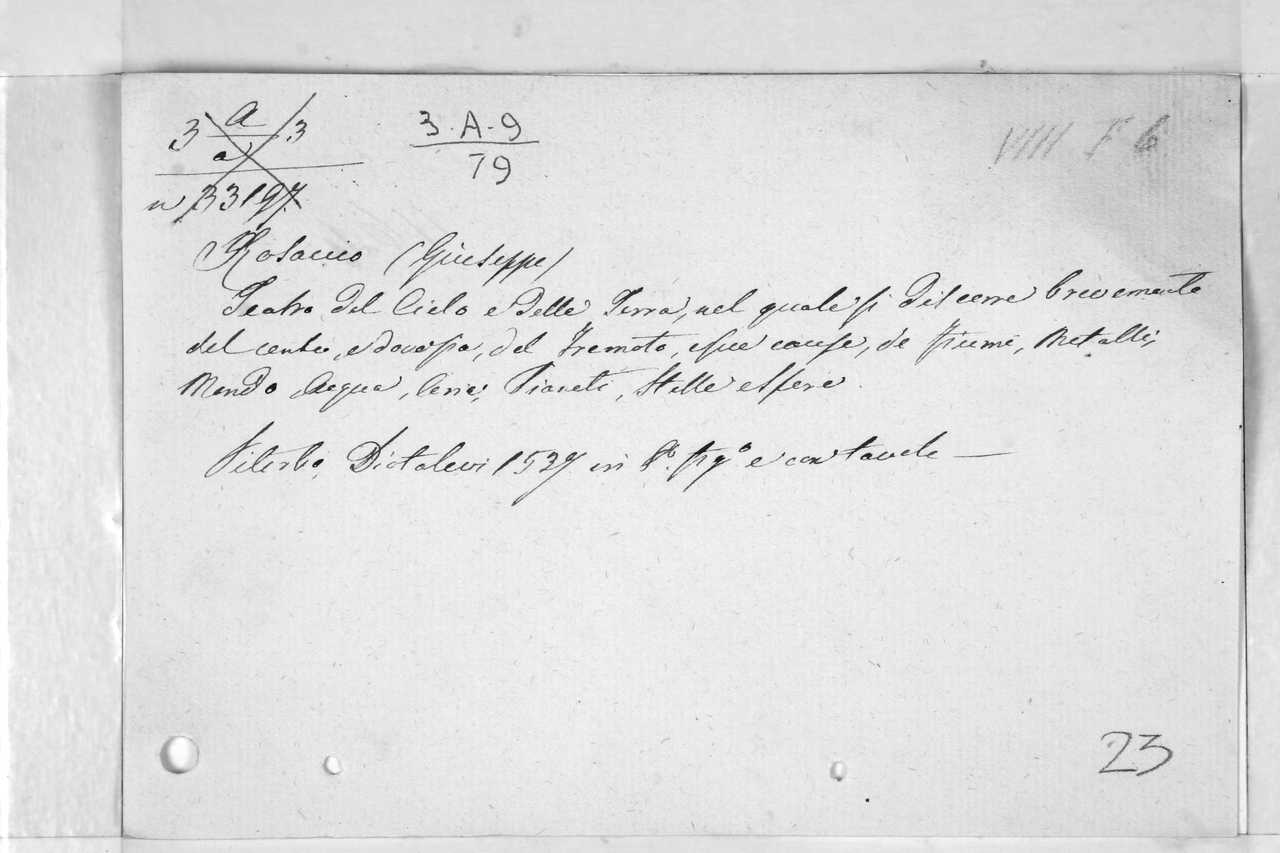 3 a/a 3
n 33197
3·A·9
79
VIII F 6
Rosaccio (Giuseppe)
Teatro del Cielo e delle Terra, nel quale si discerre brevemente
del centro, e dov'sia, del Tremoto, e sue cause, de fiumi, Metalli,
Mondo Acqua, Aerie, Pianeti, Stelle e sfere.
Viterbo Diotalevi 1527 in 8º. figº e con tavole —
23